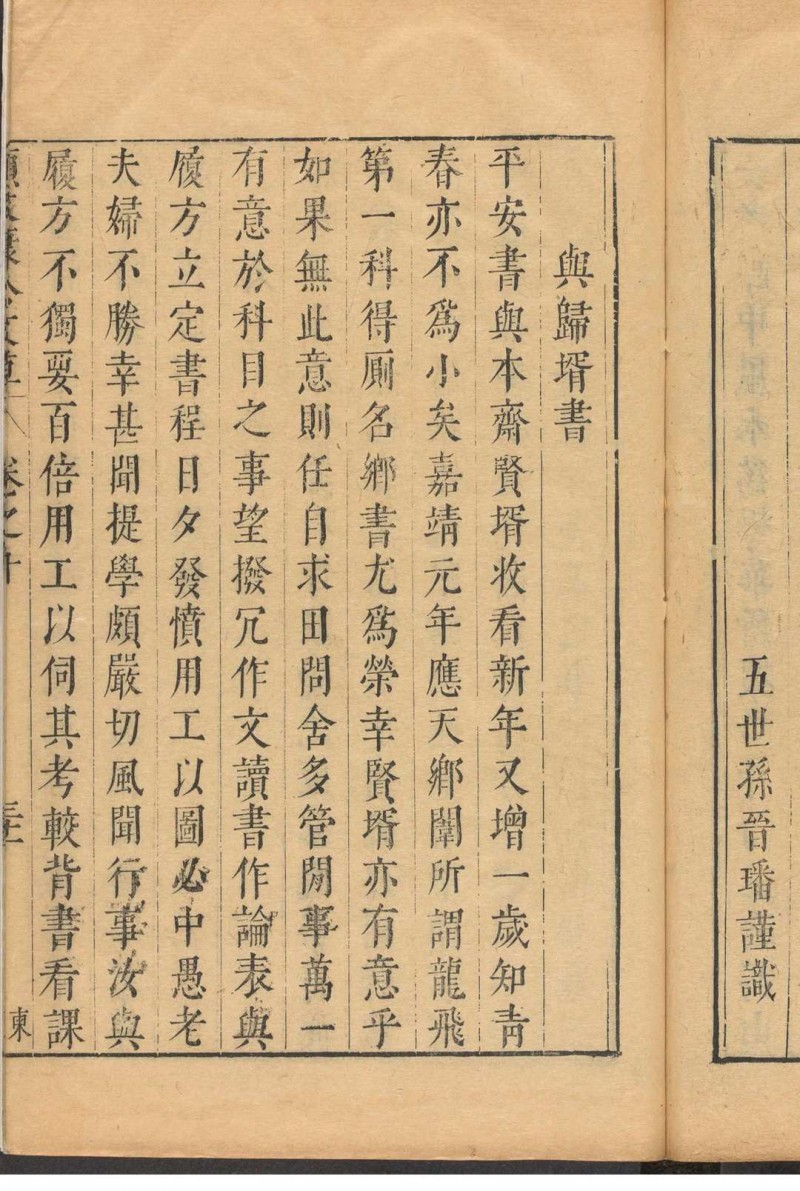 五世孫晉璠謹識
與歸壻書
平安書與本齋賢壻收看新年又增一歲知靑
春亦不爲小矣嘉靖元年應天鄉闈所謂龍飛
第一科得厠名鄉書尤爲榮幸賢壻亦有意乎
如果無此意則任自求田問舍多管閒事萬一
有意於科目之事望撥冗作文讀書作論表與
履方立定書程日夕發憤用工以圖必中愚老
夫婦不勝幸甚聞提學頗嚴切風聞行事汝與
履方不獨要百倍用工以伺其考較背書看課
卷之十
東